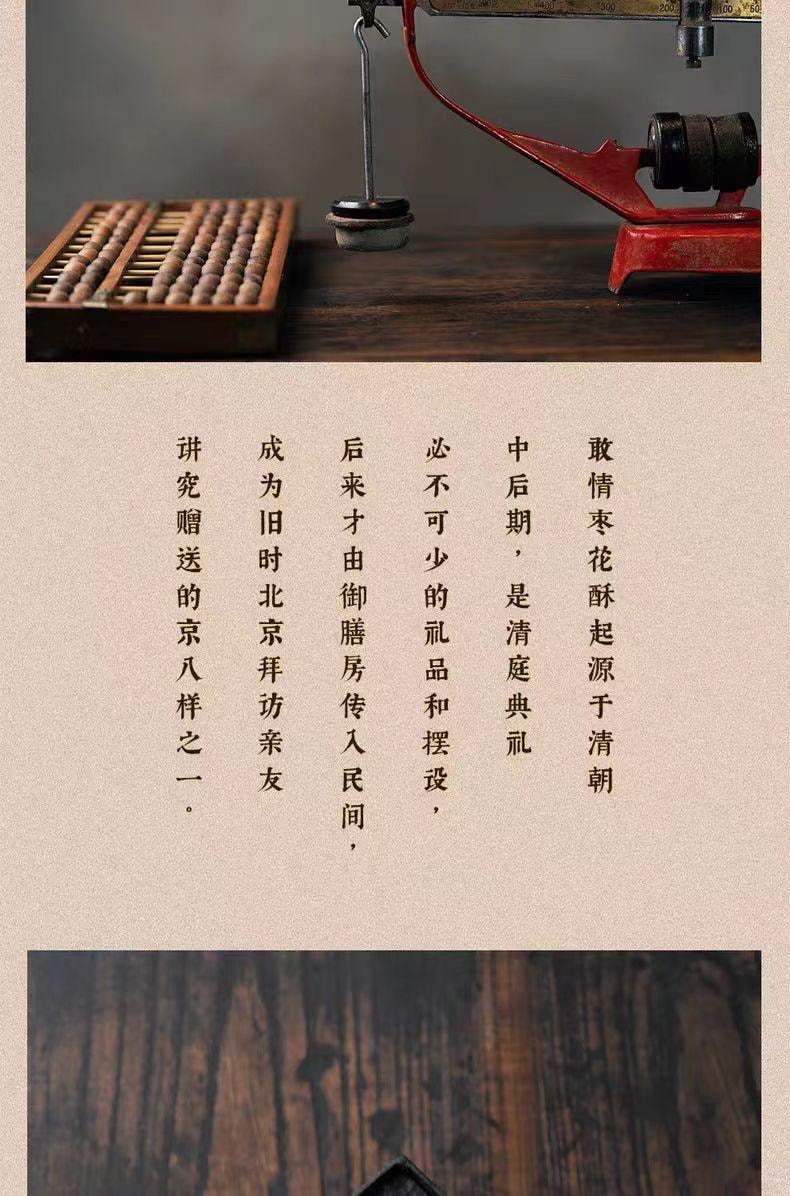 敢情枣花酥起源于清朝
中后期，是清庭典礼
必不可少的礼品和摆设，
后来才由御膳房传入民间，
成为旧时北京拜访亲友
讲究赠送的京八样之一。
400
300
200
100
50